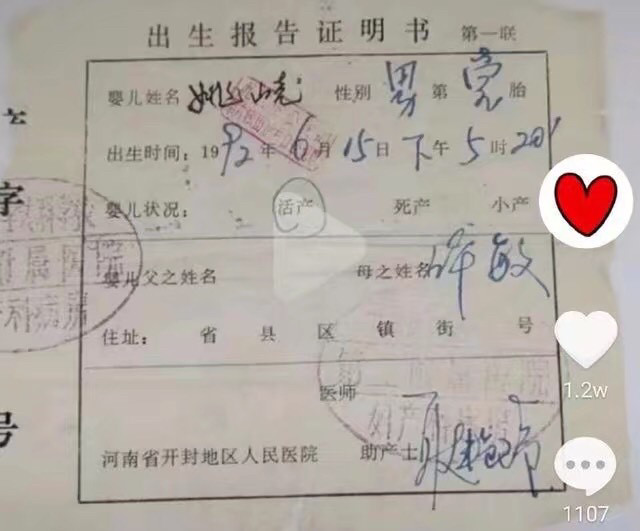 出生报告证明书 第一联
婴儿姓名 姚 性别 男 第 胎
出生时间：1992年6月15日下午5时20'
婴儿状况： 活产 死产 小产
婴儿父之姓名 母之姓名 许敏
住址： 省 县 区 镇 街 号
医师
河南省开封地区人民医院 助产士
字
号
附属医院
科病房
第二附属医院
妇产
1.2w
1107